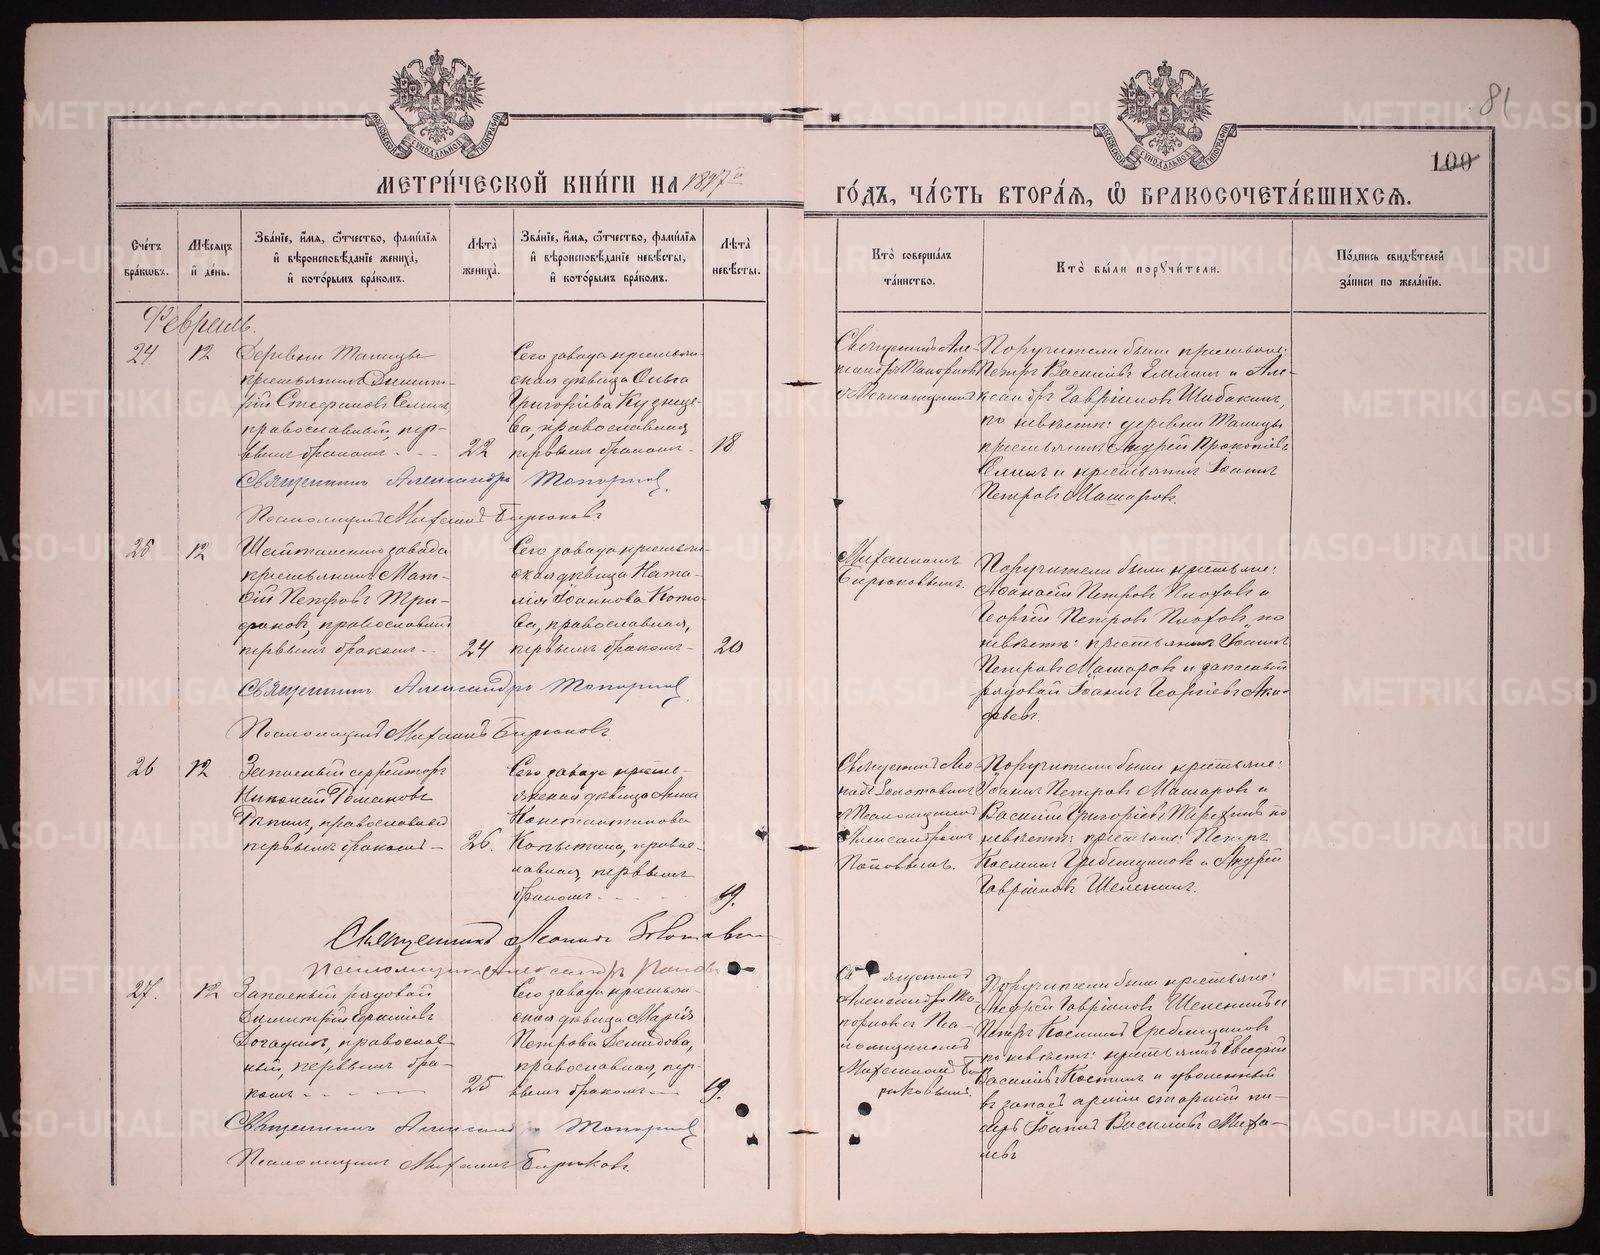 81
100
МЕТРИ́ЧЕСКОЙ КНИ́ГИ НА 1897й
ГО́ДЪ, ЧА́СТЬ ВТОРА́Я, Ѡ БРАКОСОЧЕТА́ВШИХСЯ.
Сче́тъ бра́ковъ.
Мѣ́сяцъ и҆ де́нь.
Зва́нїе, и҆́мя, ѻ҆́тчество, фами́лїя и҆ вѣроисповѣ́данїе жениха̀, и҆ кото́рымъ бра́комъ.
Лѣ́та жениха̀.
Зва́нїе, и҆́мя, ѻ҆́тчество, фами́лїя и҆ вѣроисповѣ́данїе невѣ́сты, и҆ кото́рымъ бра́комъ.
Лѣ́та невѣ́сты.
Кто̀ соверша́лъ та́инство.
Кто̀ бы́ли порꙋчи́тели.
По́дпись свидѣ́телей за́писи по жела́нїю.
Февраль.
24
12
Деревни Талицы
крестьянинъ Димит-
рій Стефановъ Селинъ,
православный, пер-
вымъ бракомъ
22
Сего завода крестьян-
ская дѣвица Ольга
Григоріева Кузнеце-
ва, православная
первымъ бракомъ
18
Священникъ Але-
ксандръ Топорковъ
Поручители были крестьяне:
Петръ Васильевъ Елькинъ и Але-
ксандръ Гавріиловъ Шибакинъ,
по невѣстѣ: деревни Талицы
крестьянинъ Андрей Прокопіевъ
Селинъ и крестьянинъ Іоаннъ
Петровъ Машаровъ.
Священникъ Александръ Топорковъ
Псаломщикъ Михаилъ Бирюковъ
25
12
Шайтанскаго завода
крестьянинъ Мат-
ѳій Петровъ Три-
фоновъ, православный
первымъ бракомъ
24
Сего завода крестьян-
ская дѣвица Ната-
лія Іоаннова Кото-
ва, православная,
первымъ бракомъ
20
Михаиломъ
Бирюковымъ.
Поручители были крестьяне:
Аѳанасій Петровъ Пчоховъ и
Георгій Петровъ Пчоховъ, по
невѣстѣ: крестьянинъ Іоаннъ
Петровъ Машаровъ и запасный
рядовой Іоаннъ Георгіевъ Аки-
фьевъ.
Священникъ Александръ Топорковъ
Псаломщикъ Михаилъ Бирюковъ
26
12
Запасный ефрейторъ
Николай Романовъ
православный
первымъ бракомъ
26.
Сего завода кресть-
янская дѣвица Анна
Константинова
Копытина, правос-
лавная, первымъ
бракомъ
19.
Священникъ Лео-
нидъ Золотавинъ
Псаломщикъ
Александромъ
Поповымъ.
Поручители были крестьяне:
Іоаннъ Петровъ Машаровъ и
Василій Григоріевъ Терехинъ по
невѣстѣ: крестьяне: Петръ
Косминъ Гребенщиковъ и Андрей
Гавріиловъ Шелекинъ.
Священникъ Леонидъ Золотавинъ
Псаломщикъ Александръ Поповъ
27.
12
Запасный рядовой
Димитрій
Догадинъ, православ-
ный, первымъ бра-
комъ
25
Сего завода крестьян-
ская дѣвица Марія
Петрова Демидова,
православная, пер-
вымъ бракомъ
19.
Священникъ
Александръ То-
порковъ и Пса-
ломщикомъ
Михаиломъ Би-
рюковымъ.
Поручители были крестьяне:
Андрей Гавріиловъ Шелекинъ и
Петръ Косминъ Гребенщиковъ
по невѣстѣ: крестьянинъ Евсевій
Васильевъ Костинъ и уволенный
въ запасъ арміи старшій пи-
сарь Іоаннъ Васильевъ Миха-
левъ
Священникъ Александръ Топорковъ
Псаломщикъ Михаилъ Бирюковъ.
METRIKI.GASO-URAL.RU